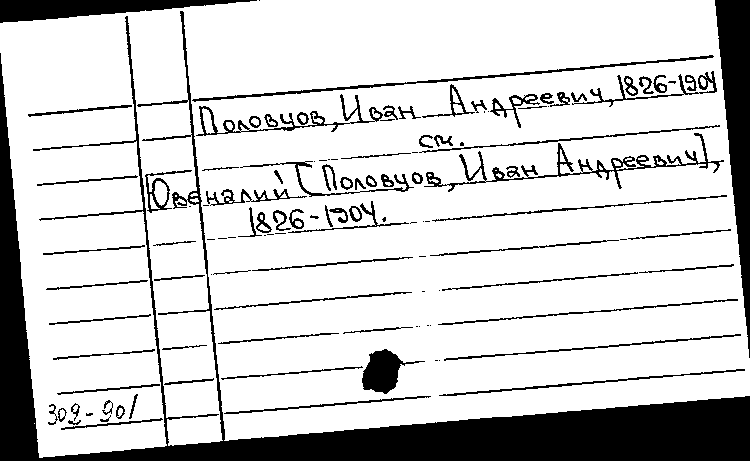 Половцов, Иван Андреевич, 1826-1904
см.
Ювеналий [Половцов, Иван Андреевич],
1826-1904.
302-901